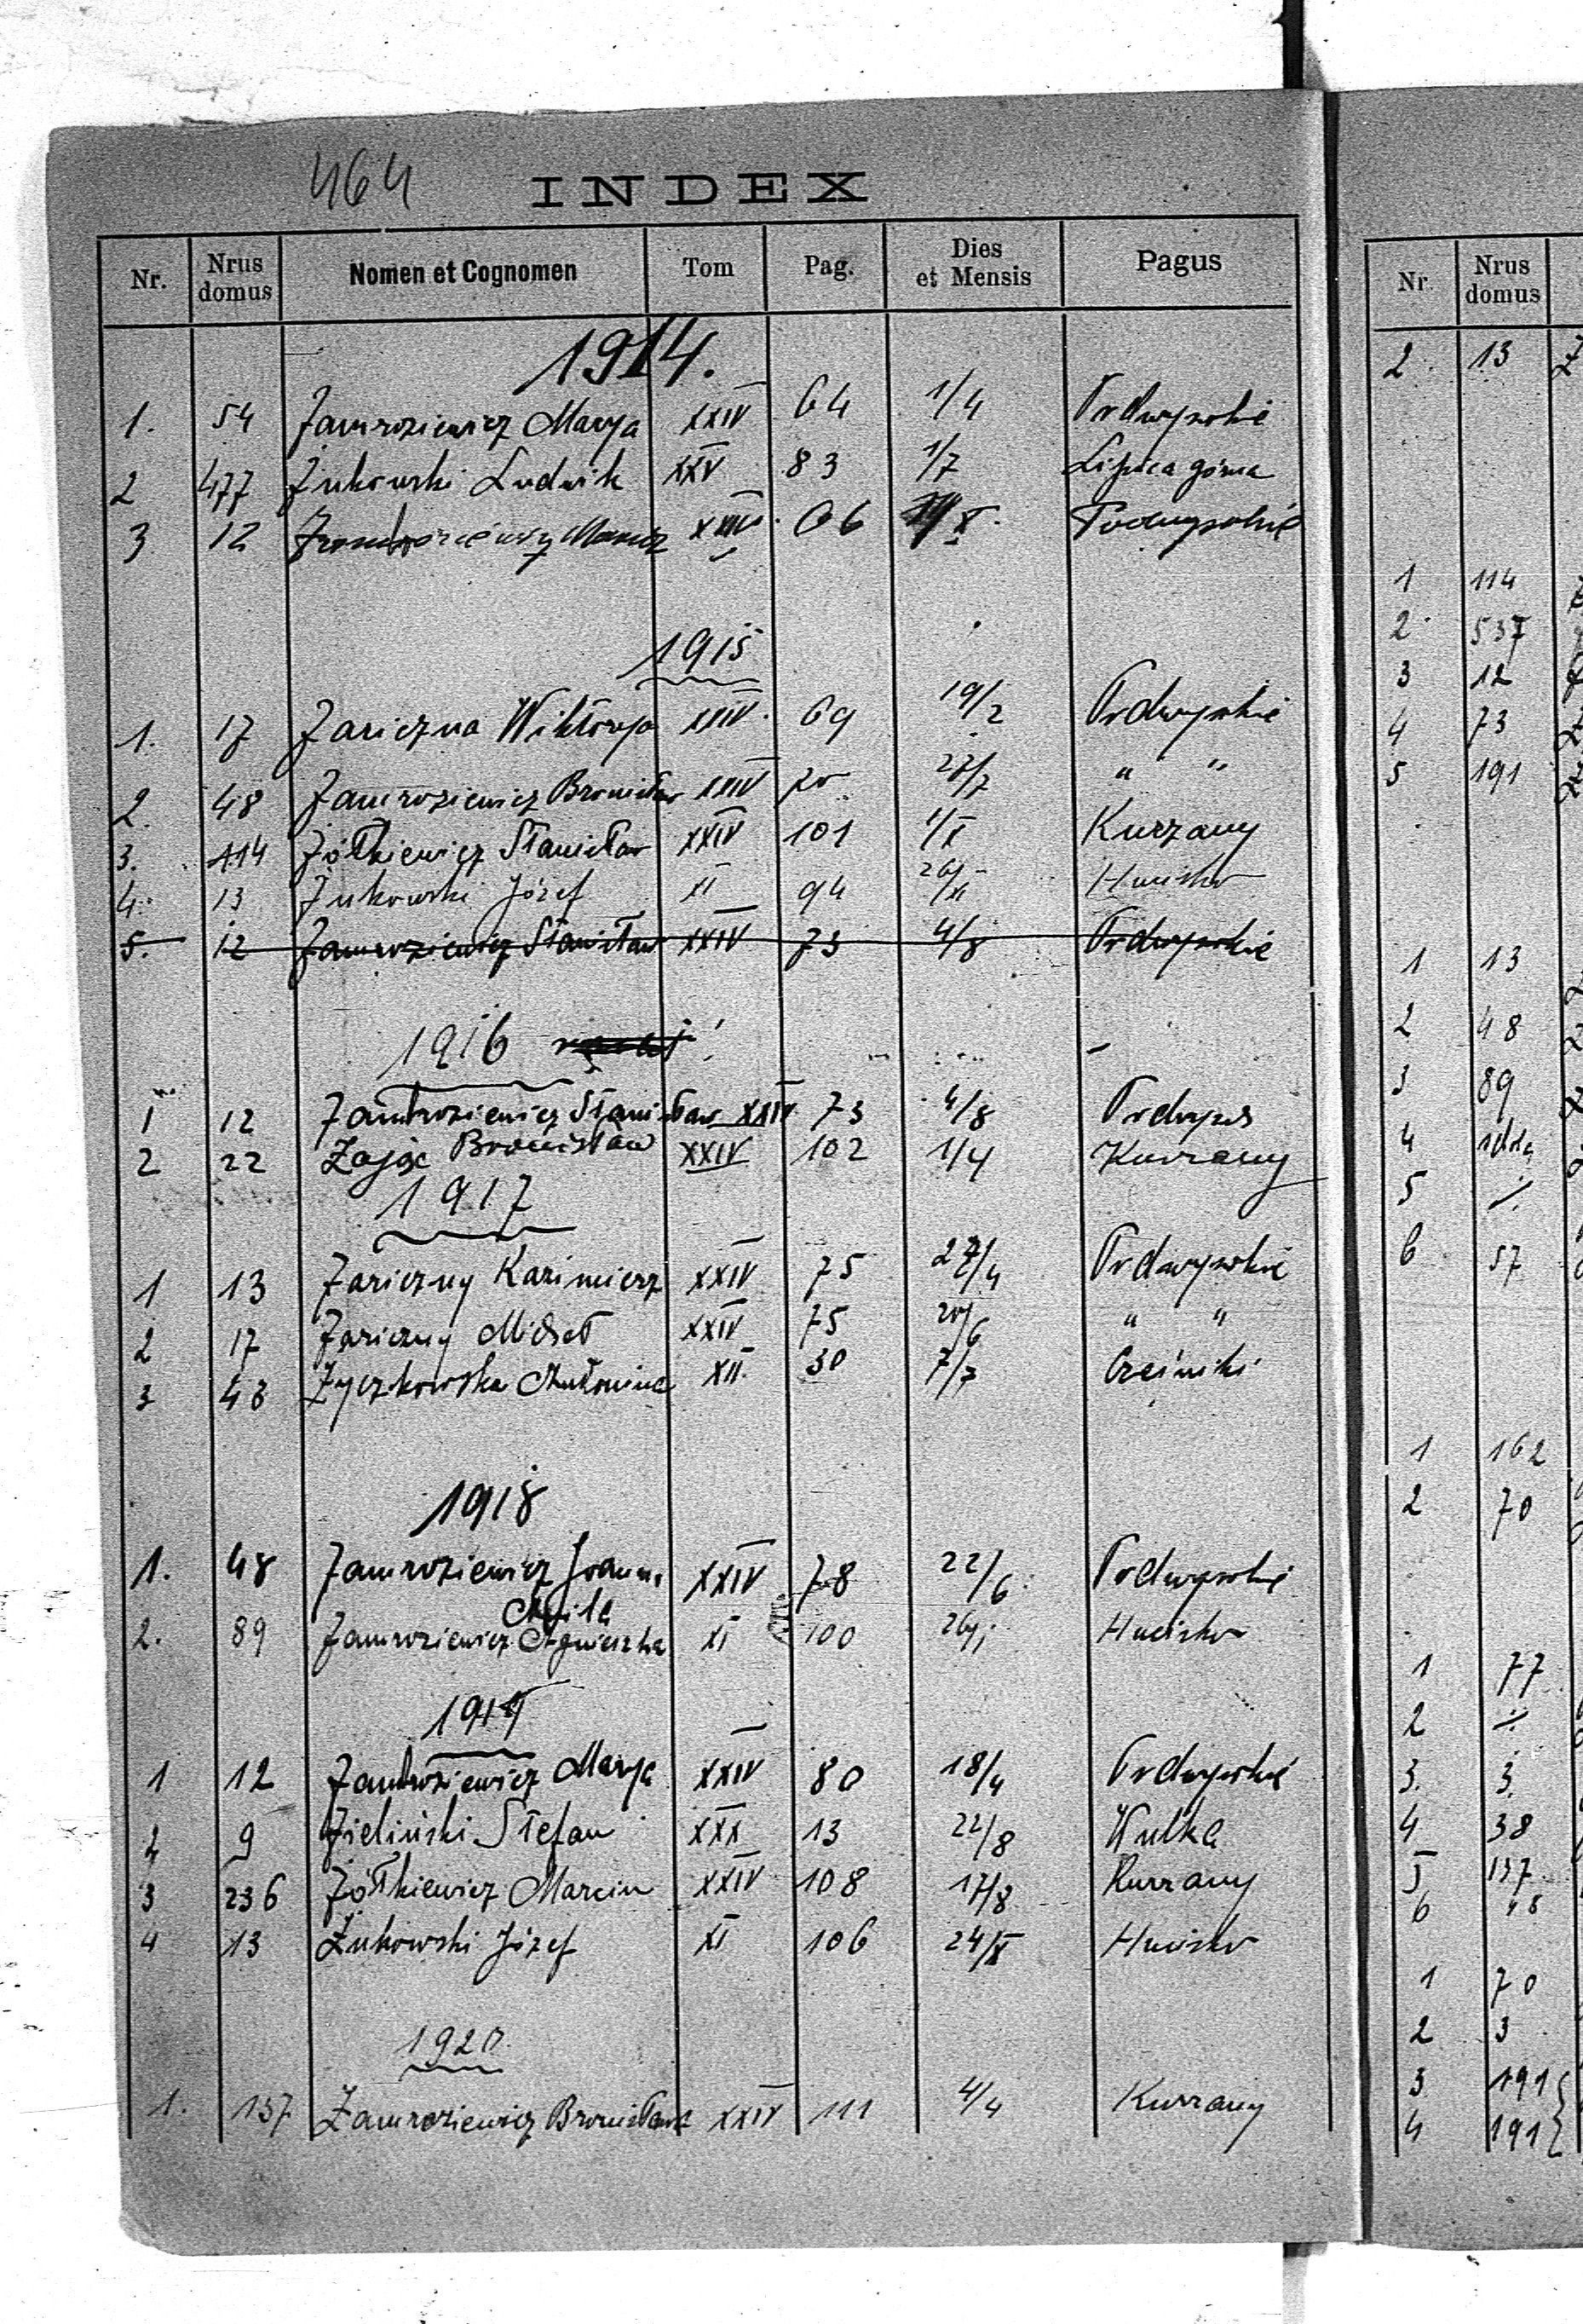 464
INDEX
Nr. Nrus domus Nomen et Cognomen Tom Pag. Dies et Mensis Pagus
1914.
1. 54 Zamroziewicz Marya XXIV 64 1/4 Podwysokie
2 477 Żukowski Ludwik XXV 83 1/7 Lipica górna
3 12 66 Podwysokie
1915
1. 17 Zariczna Wiktorya XXIV 69 19/2 Podwysokie
2. 48 Zamroziewicz Bronisław XXIV 70 27/7 " "
3. 114 Żółkiewicz Stanisław XXIV 101 1/X Kurzany
4. 13 Żukowski Józef XI 94 26/XI Hucisko
5. 12 Zamroziewicz Stanisław XXIV 73 4/8 Podwysokie
1916
1 12 Zambroziewicz Stanisław XXIV 73 4/8 Podwys
2 22 Zając Bronisław XXIV 102 1/4 Kurzany
1917
1 13 Zariczny Kazimierz XXIV 75 /4 Podwysokie
2 17 Zariczny Michał XXIV 75 20/6 " "
3 43 Życzkowska Antonina XII. 30 7/7 Cześniki
1918
1. 48 Zamroziewicz Joanna XXIV 78 22/6 Podwysokie
2. 89 Zamroziewicz Agnieszka XI 100 Hucisko
1919
1 12 Zambroziewicz Marya XXIV 80 18/4 Podwysokie
2 9 Zieliński Stefan XXX 13 22/8 Wulka
3 236 Żółkiewicz Marcin XXIV 108 17/8 Kurzany
4 13 Żukowski Józef XI 106 24/X Hucisko
1920
1. 137 Zamroziewicz Bronisława XXIV 111 4/4 Kurzany
Nr. Nrus domus
2. 13
1 114
2 537
3 12
4 73
5 191
1 13
2 48
3 89
4
5
6 57
1 162
2 70
1 77
2
3. 3.
4 38
5 137
6 48
1 70
2 3
3 191
4 191